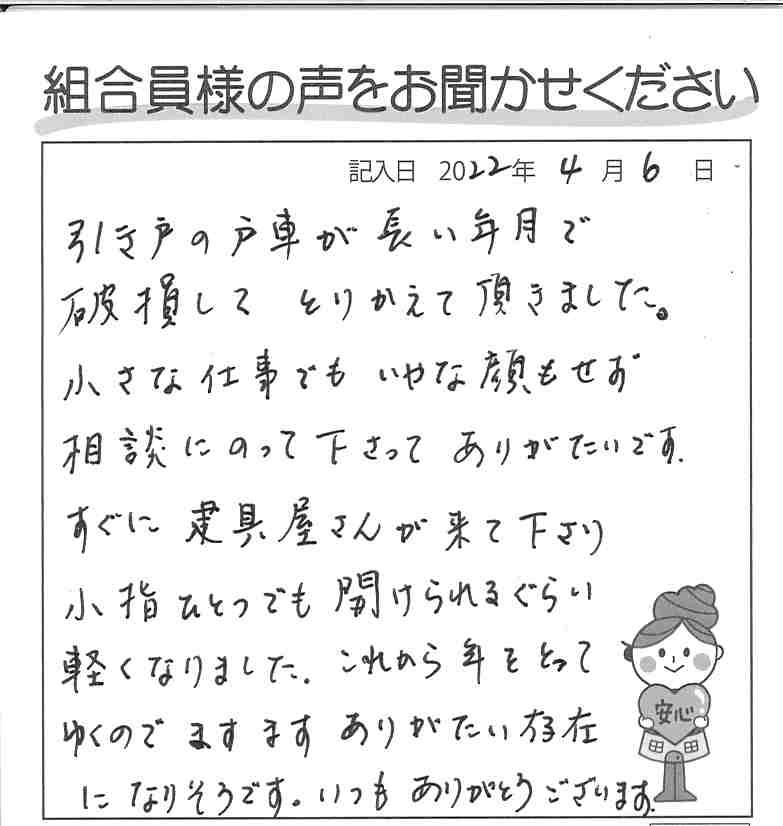 組合員様の声をお聞かせください
記入日 2022年 4月 6日
引き戸の戸車が長い年月で
破損して とりかえて頂きました。
小さな仕事でも いやな顔もせず
相談にのって下さって ありがたいです.
すぐに 建具屋さんが来て下さり
小指ひとつでも 開けられるぐらい
軽くなりました. これから年をとって
ゆくので ますます ありがたい存在
になりそうです。いつも ありがとうございます.
安心